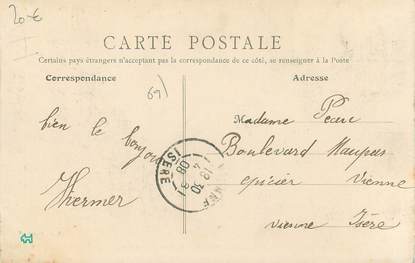 20 €
CARTE POSTALE
Certains pays étrangers n'acceptant pas la correspondance de ce côté, se renseigner à la Poste
Correspondance
Adresse
69)
Madame
bien le bonjour
Boulevard
épicier Vienne
Vienne Isère
ISÈRE
18 30